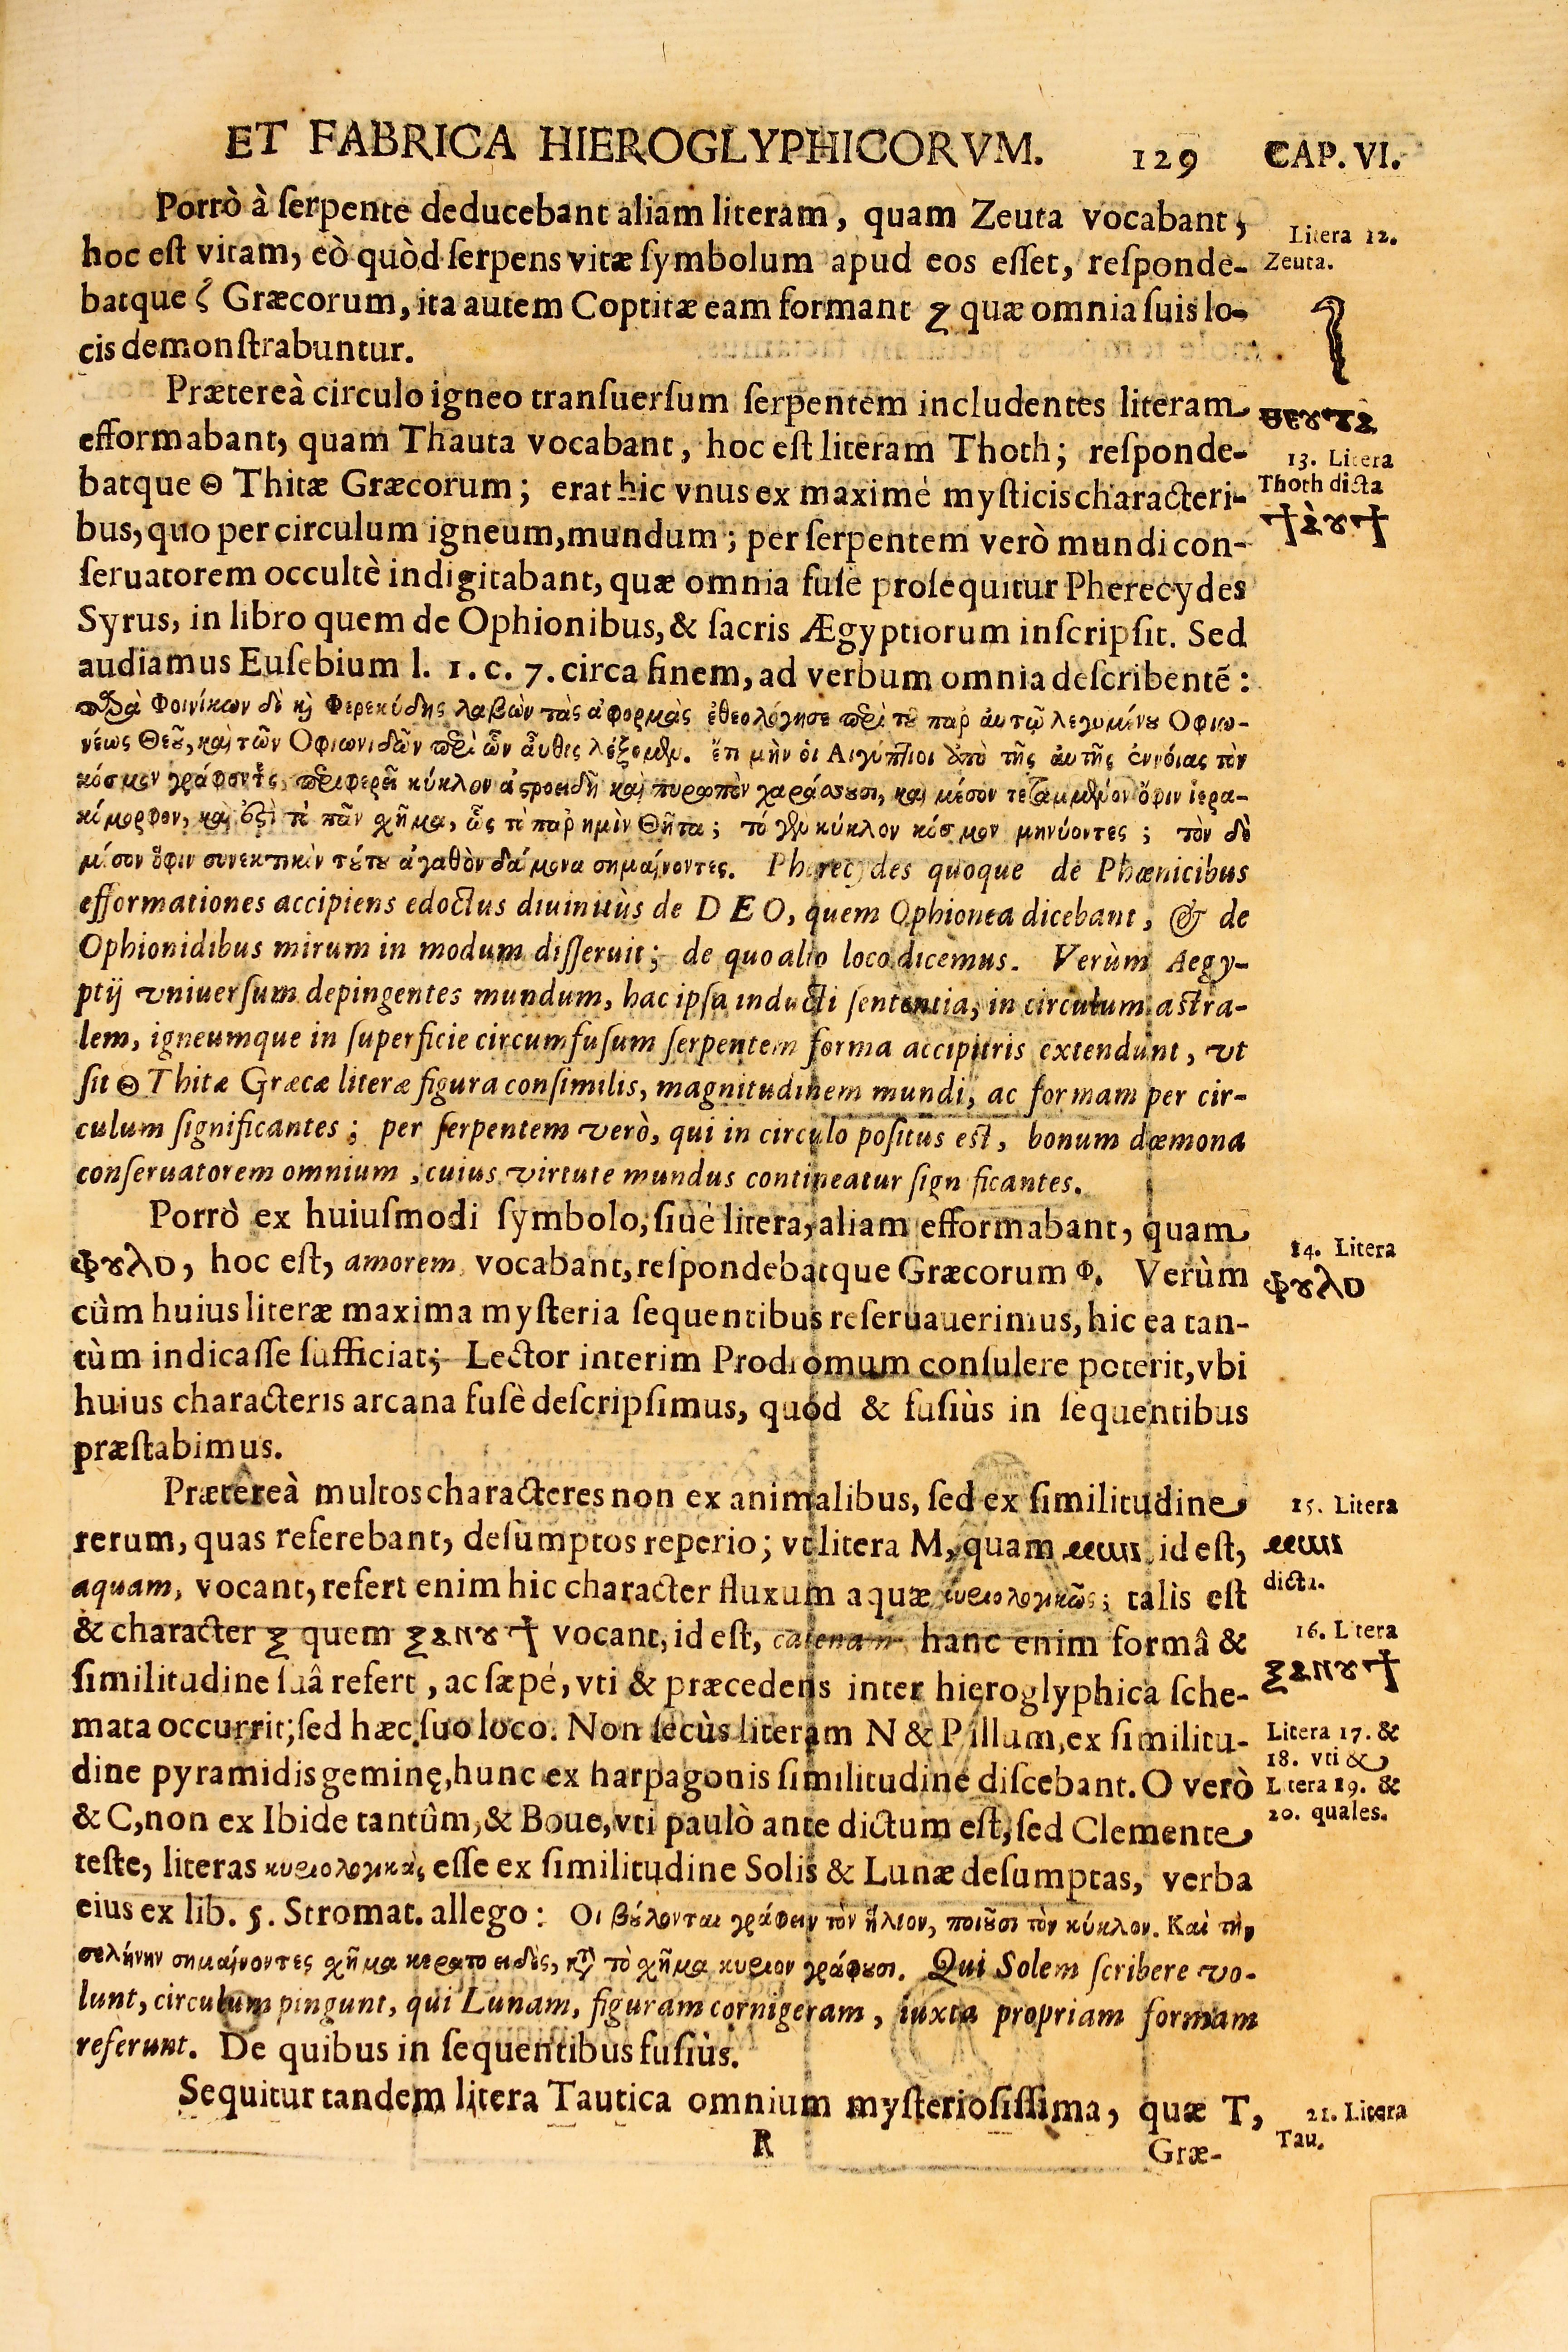 ET FABRICA HIEROGLYPHICORVM. 129 CAP. VI.
Porrò à ſerpente deducebant aliam literam, quam Zeuta vocabant,
hoc eſt vitam, eò quòd ſerpens vitæ ſymbolum apud eos eſſet, reſponde-
batque ζ Græcorum, ita autem Coptitæ eam formant ⲍ quæ omnia ſuis lo-
cis demonſtrabuntur.
Litera 12.
Zeuta.
Prætereà circulo igneo tranſuerſum ſerpentem includentes literam
efformabant, quam Thauta vocabant, hoc eſt literam Thoth; reſponde-
batque Θ Thitæ Græcorum; erat hic vnus ex maximè myſticis characteri-
bus, quo per circulum igneum, mundum; per ſerpentem verò mundi con-
ſeruatorem occultè indigitabant, quæ omnia fuſe proſequitur Pherecydes
Syrus, in libro quem de Ophionibus, & ſacris Ægyptiorum inſcripſit. Sed
audiamus Euſebium l. 1. c. 7. circa finem, ad verbum omnia deſcribentẽ:
ⲑⲉⲩⲧⲁ
13. Litera
Thoth dicta
ϯⲁⲩϯ
παρὰ Φοινίκων δὲ κ̀ Φερεκύδης λαβὼν τὰς ἀφορμὰς ἐθεολόγησε περὶ τ͂ȣ παρ ἀυτῷ λεγομένȣ Οφιο-
νέως Θεȣ͂, καὶ τῶν Οφιωνιδῶν περὶ ὧν ἆυθις λέξομεν. ἔτι μὴν ὁι Αιγύπτιοι ἀπὸ τῆς ἀυτῆς ἐννόιας τὸν
κόσμον γράφοντες, περιφερῆ κύκλον ἀεροειδῆ καὶ πυρωπὸν χαράσσȣσι, καὶ μέσον τεταμμένον ὄφιν ἱερα-
κόμορφον, καὶ ἔστι τὸ πᾶν χῆμα, ὧς τὸ παρ ημὶν Θῆτα; τό μὲν κύκλον κόσμον μηνύοντες; τὸν δὲ
μέσον ὄφιν συνεκτικὸν τȣ́τȣ ἀγαθὸν δαίμονα σημαίνοντες. Pherecydes quoque de Phœnicibus
efformationes accipiens edoctus diuinitùs de DEO, quem Ophionea dicebant, & de
Ophionidibus mirum in modum diſſeruit; de quo alio loco dicemus. Verùm Aegy-
ptij vniuerſum depingentes mundum, hac ipſa inducti ſententia, in circulum aſtra-
lem, igneumque in ſuperficie circumfuſum ſerpentem forma accipitris extendunt, vt
ſit Θ Thitæ Græcæ literæ figura conſimilis, magnitudinem mundi, ac formam per cir-
culum ſignificantes; per ſerpentem verò, qui in circulo poſitus eſt, bonum dæmona
conſeruatorem omnium, cuius virtute mundus contineatur ſignificantes.
Porrò ex huiuſmodi ſymbolo, ſiuè litera, aliam efformabant, quam
ⲫⲩⲗⲟ, hoc eſt, amorem vocabant, reſpondebatque Græcorum Φ. Verùm
cùm huius literæ maxima myſteria ſequentibus reſeruauerimus, hic ea tan-
tùm indicaſſe ſufficiat; Lector interim Prodromum conſulere poterit, vbi
huius characteris arcana fuſè deſcripſimus, quod & fuſiùs in ſequentibus
præſtabimus.
14. Litera
ⲫⲩⲗⲟ
Prætereà multos characteres non ex animalibus, ſed ex ſimilitudine
rerum, quas referebant, deſumptos reperio; vt litera M, quam ⲙⲱⲓ id eſt,
aquam, vocant, refert enim hic character fluxum aquæ κυριολογικῶς; talis eſt
& character ⲝ quem ⲝⲁⲛⲩϯ vocant, id eſt, catenam hanc enim formâ &
ſimilitudine ſuâ refert, ac ſæpè, vti & præcedens inter hieroglyphica ſche-
mata occurrit; ſed hæc ſuo loco. Non ſecùs literam N & P illum, ex ſimilitu-
dine pyramidis geminę, hunc ex harpagonis ſimilitudine diſcebant. O verò
& C, non ex Ibide tantûm, & Boue, vti paulò ante dictum eſt, ſed Clemente
teſte, literas κυριολογικὰς eſſe ex ſimilitudine Solis & Lunæ deſumptas, verba
eius ex lib. 5. Stromat. allego: Οι βȣ́λονται γράφειν τὸν ἥλιον, ποιȣ͂σι τὸν κύκλον. Καὶ τὴν
σελήνην σημαίνοντες χῆμα κερατοειδὲς, κτ̀ τὸ χῆμα κυριον γράφȣσι. Qui Solem ſcribere vo-
lunt, circulum pingunt, qui Lunam, figuram cornigeram, iuxta propriam formam
referunt. De quibus in ſequentibus fuſiùs.
15. Litera
ⲙⲱⲓ
dicta.
16. Litera
ⲝⲁⲛⲩϯ
Litera 17. &
18. vti &
Litera 19. &
20. quales.
Sequitur tandem litera Tautica omnium myſterioſiſſima, quæ T,
21. Litera
Tau.
R
Græ-